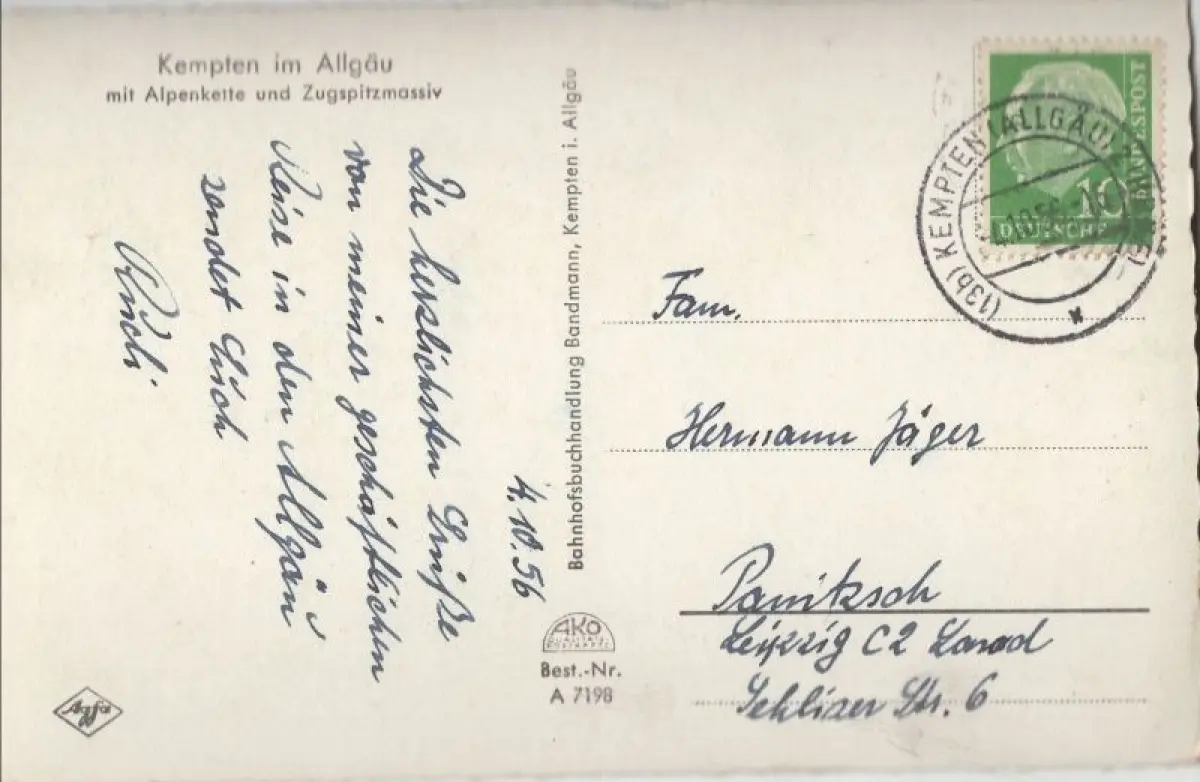 Kempten im Allgäu
mit Alpenkette und Zugspitzmassiv
4.10.56
Die herzlichsten Grüße
von meiner geschäftlichen
Reise in den Allgäu
sendet Euch
Rudi
Bahnhofsbuchhandlung Bandmann, Kempten i. Allgäu
AKO
Best.-Nr.
A 7198
Agfa
10
DEUTSCHE
BUNDESPOST
(13b) KEMPTEN (ALLGÄU)
4.10.56
Fam.
Hermann Jäger
Panitzsch
Leipzig C2 Land
Str. 6